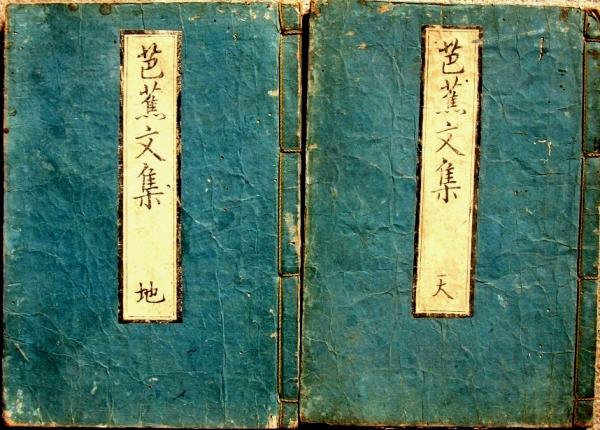 芭蕉文集
天
芭蕉文集
地